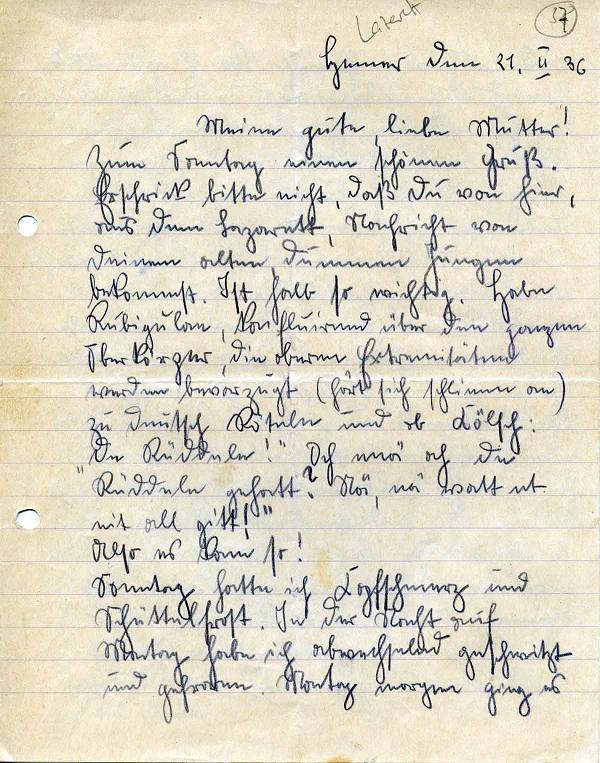 Lazarett
37
Hemer den 21. II 36
Meine gute, liebe Mutter!
Zum Sonntag einen schönen Gruß.
Erschrick bitte nicht, daß Du von hier,
aus dem Lazarett, Nachricht von
Deinem alten, dummen Jungen
bekommst. Ist halb so wichtig. Habe
konfluirend über den ganzen
Oberkörper, die oberen Extremitäten
werden bevorzugt (hört sich schlimm an)
zu deutsch Röteln und ob Kölsch:
"De Rüddele!" Och nä och de
Rüddele gehatt? Nä, nä watt et
nit all gitt!"
Also es kam so!
Sonntag hatte ich Kopfschmerz und
Schüttelfrost. In der Nacht auf
Montag habe ich abwechselnd geschwitzt
und gefroren. Montag morgen ging es